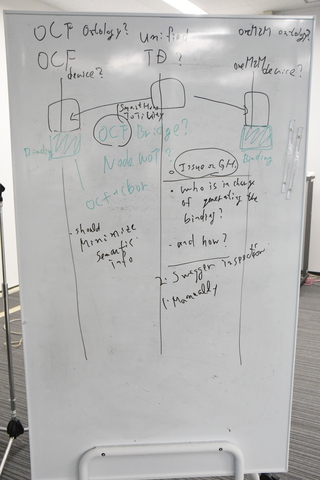 OCF Ontology?
unified
oneM2M ontology?
OCF
device?
TD ?
oneM2M
device?
Semantic
OCF Bridge?
Binding
Node WoT ?
OCF + cbor
• Issue on GH.
• who is in charge
of generating the
binding?
• and how?
- should
Minimize
semantic
info
2. Swagger inspector
1. Manually